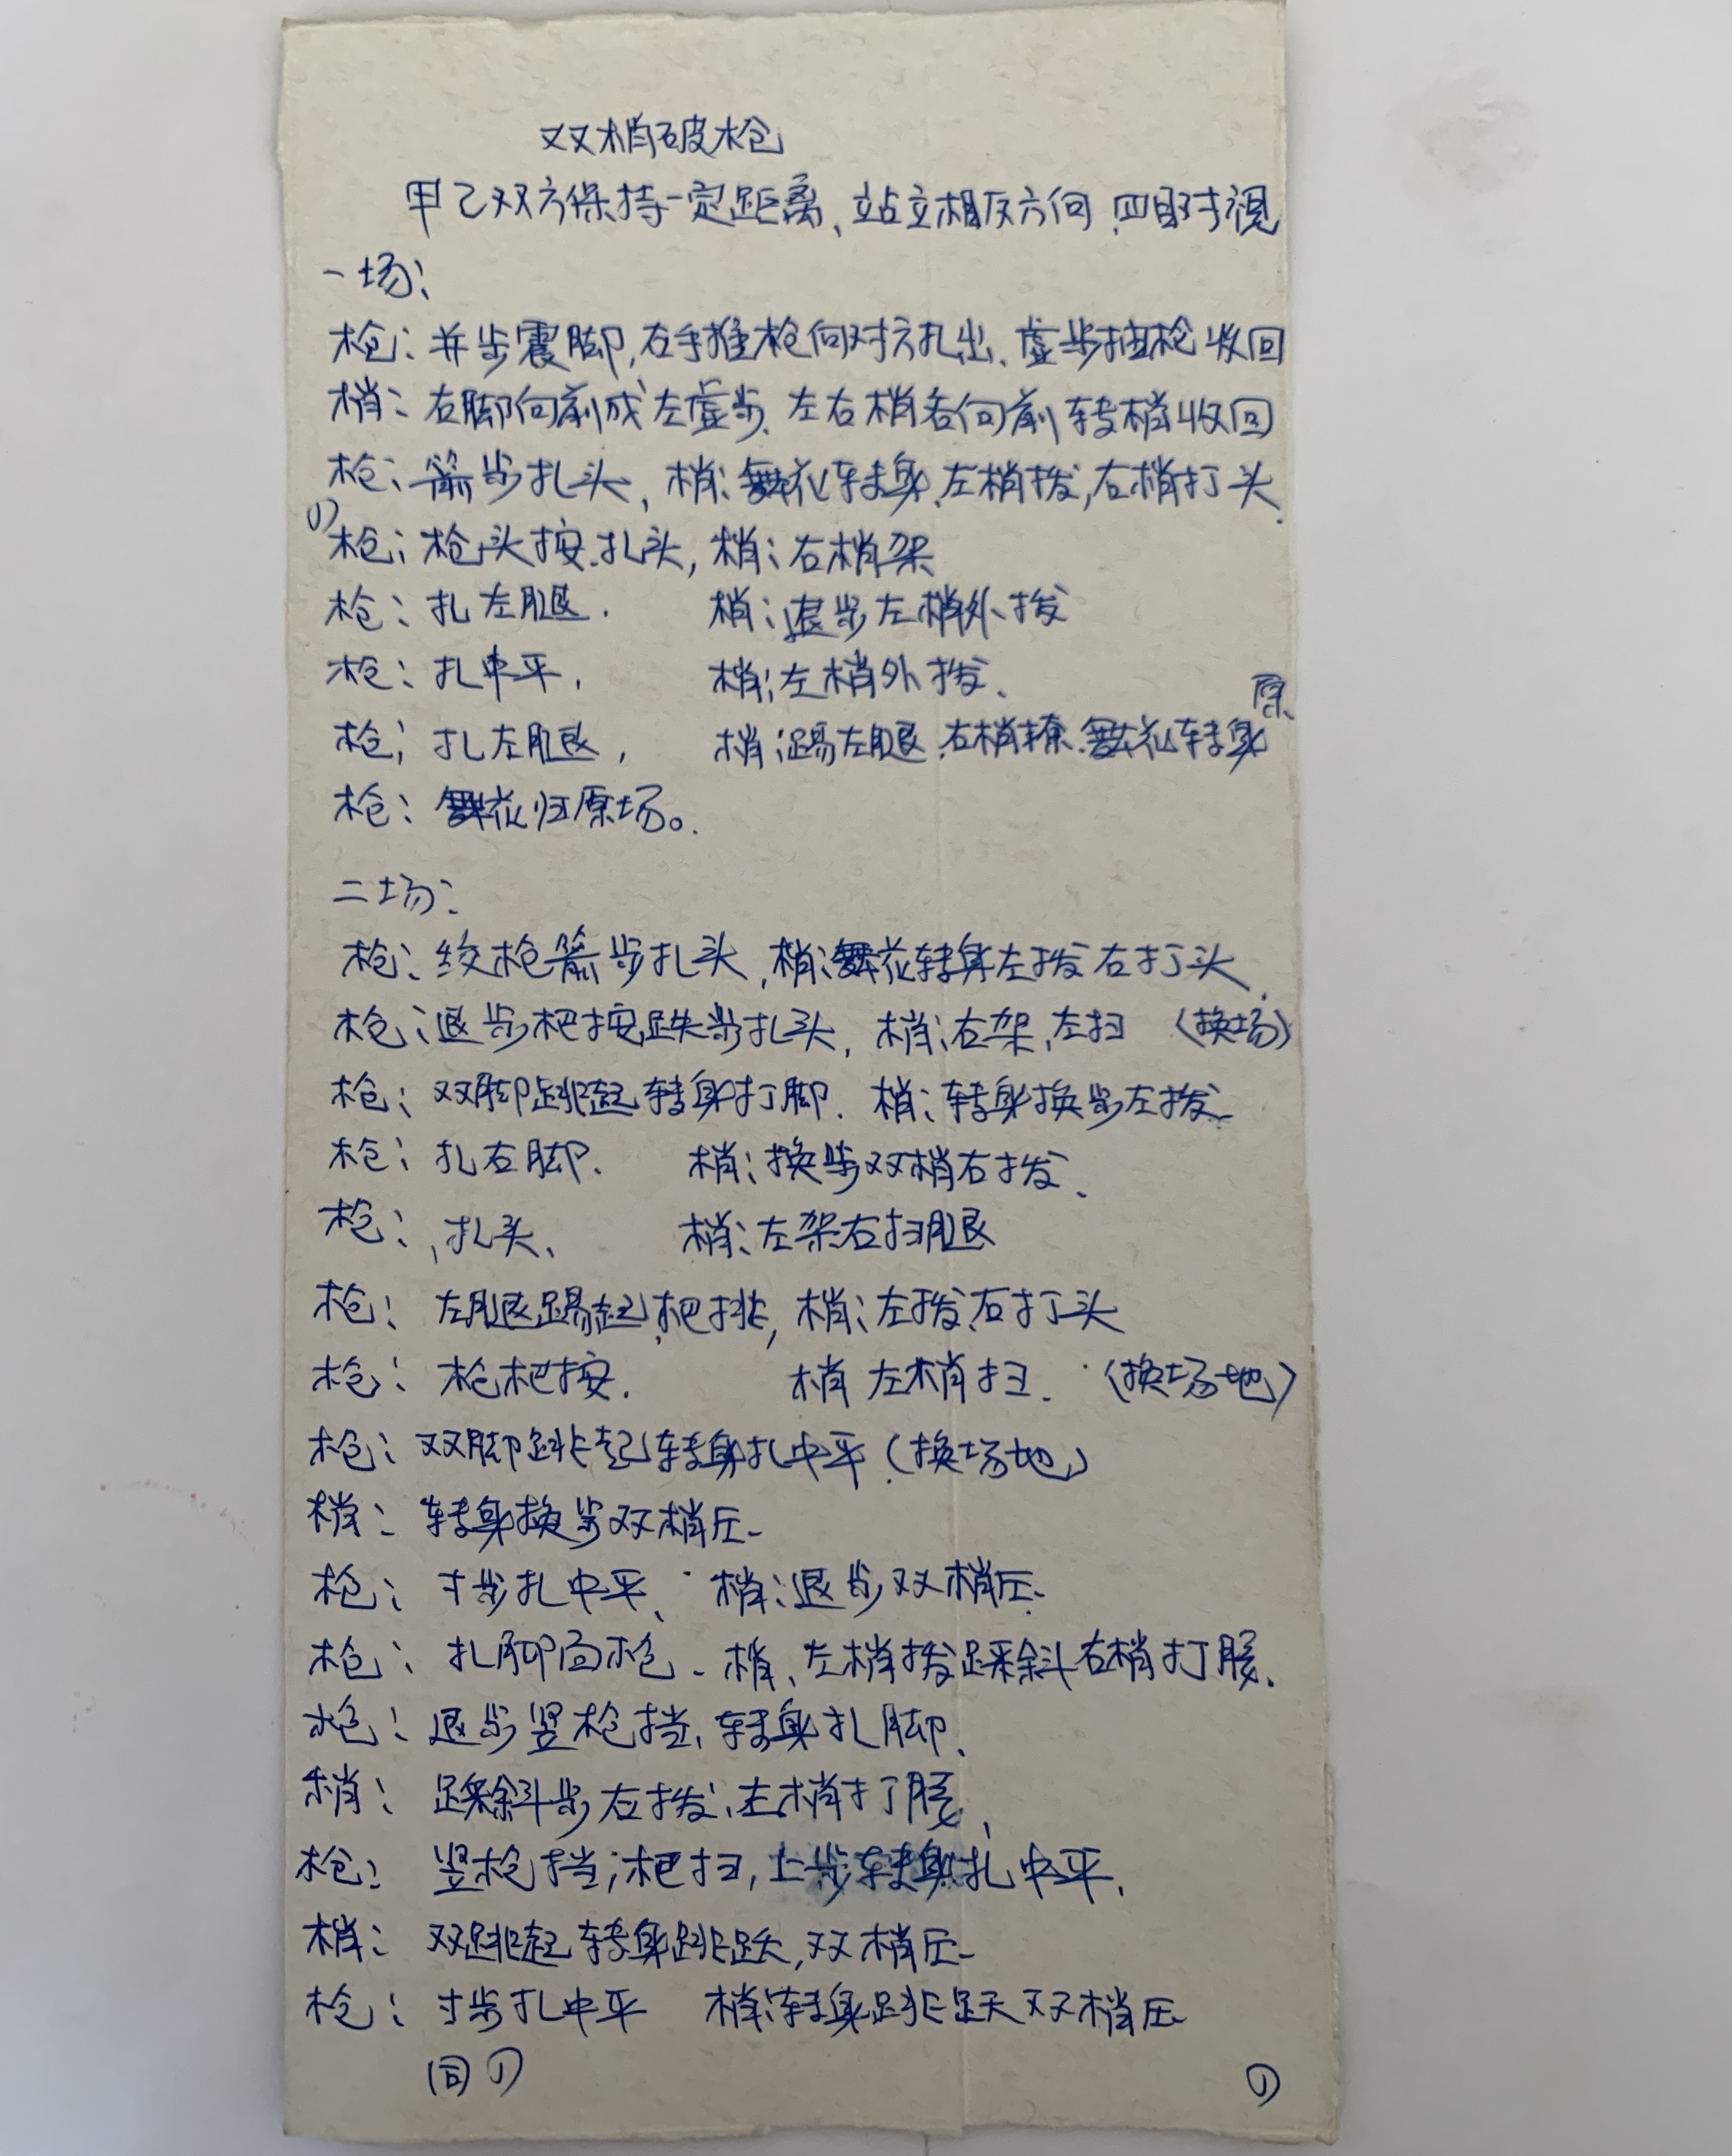 双梢破枪
甲乙双方保持一定距离、站立相反方向.四目对视
一场:
枪:并步震脚,右手推枪向对方扎出、虚步抽枪收回
梢:右脚向前成左虚步、左右梢各向前转梢收回
枪:箭步扎头,梢:舞花转身.左梢拨,右梢打头.
1)枪:枪头按.扎头,梢:右梢架
枪:扎左腿. 梢:退步左梢外拨
枪:扎中平, 梢:左梢外拨、
原
枪:扎左腿, 梢:踢左腿.右梢撩.舞花转身
枪:舞花归原场。
二场:
枪:绞枪箭步扎头,梢:舞花转身左拨右打头.
枪:退步把按跌步扎头,梢:右架,左扫(换场)
枪:双脚跳起转身打脚.梢:转身换步左拨
枪:扎右脚. 梢:换步双梢右拨、
枪:扎头、 梢:左架右扫腿
枪:左腿踢起,把排,梢:左拨.右打头
枪:枪把按. 梢 左梢扫.(换场地)
枪:双脚跳起转身扎中平.(换场地)
梢:转身换步双梢压
枪:寸步扎中平、梢:退步双梢压.
枪:扎脚面枪.梢、左梢拨踩斜右梢打腰.
枪:退步竖枪挡,转身扎脚.
梢:踩斜步右拨,左梢打腰、
枪:竖枪挡;把扫,上步转身扎中平.
梢:双跳起转身跳跃,双梢压
枪:寸步扎中平 梢:转身跳跃双梢压
(同①)
①